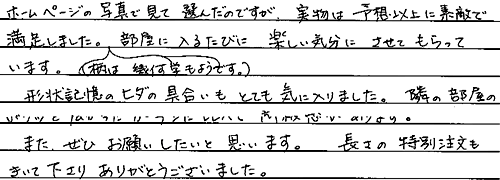 ホームページの写真で見て選んだのですが、実物は予想以上に素敵で
満足しました。部屋に入るたびに楽しい気分にさせてもらって
います。(柄は幾何学もようです。)
形状記憶のヒダの具合いもとても気に入りました。隣の部屋の
また、ぜひお願いしたいと思います。長さの特別注文も
きいて下さりありがとうございました。